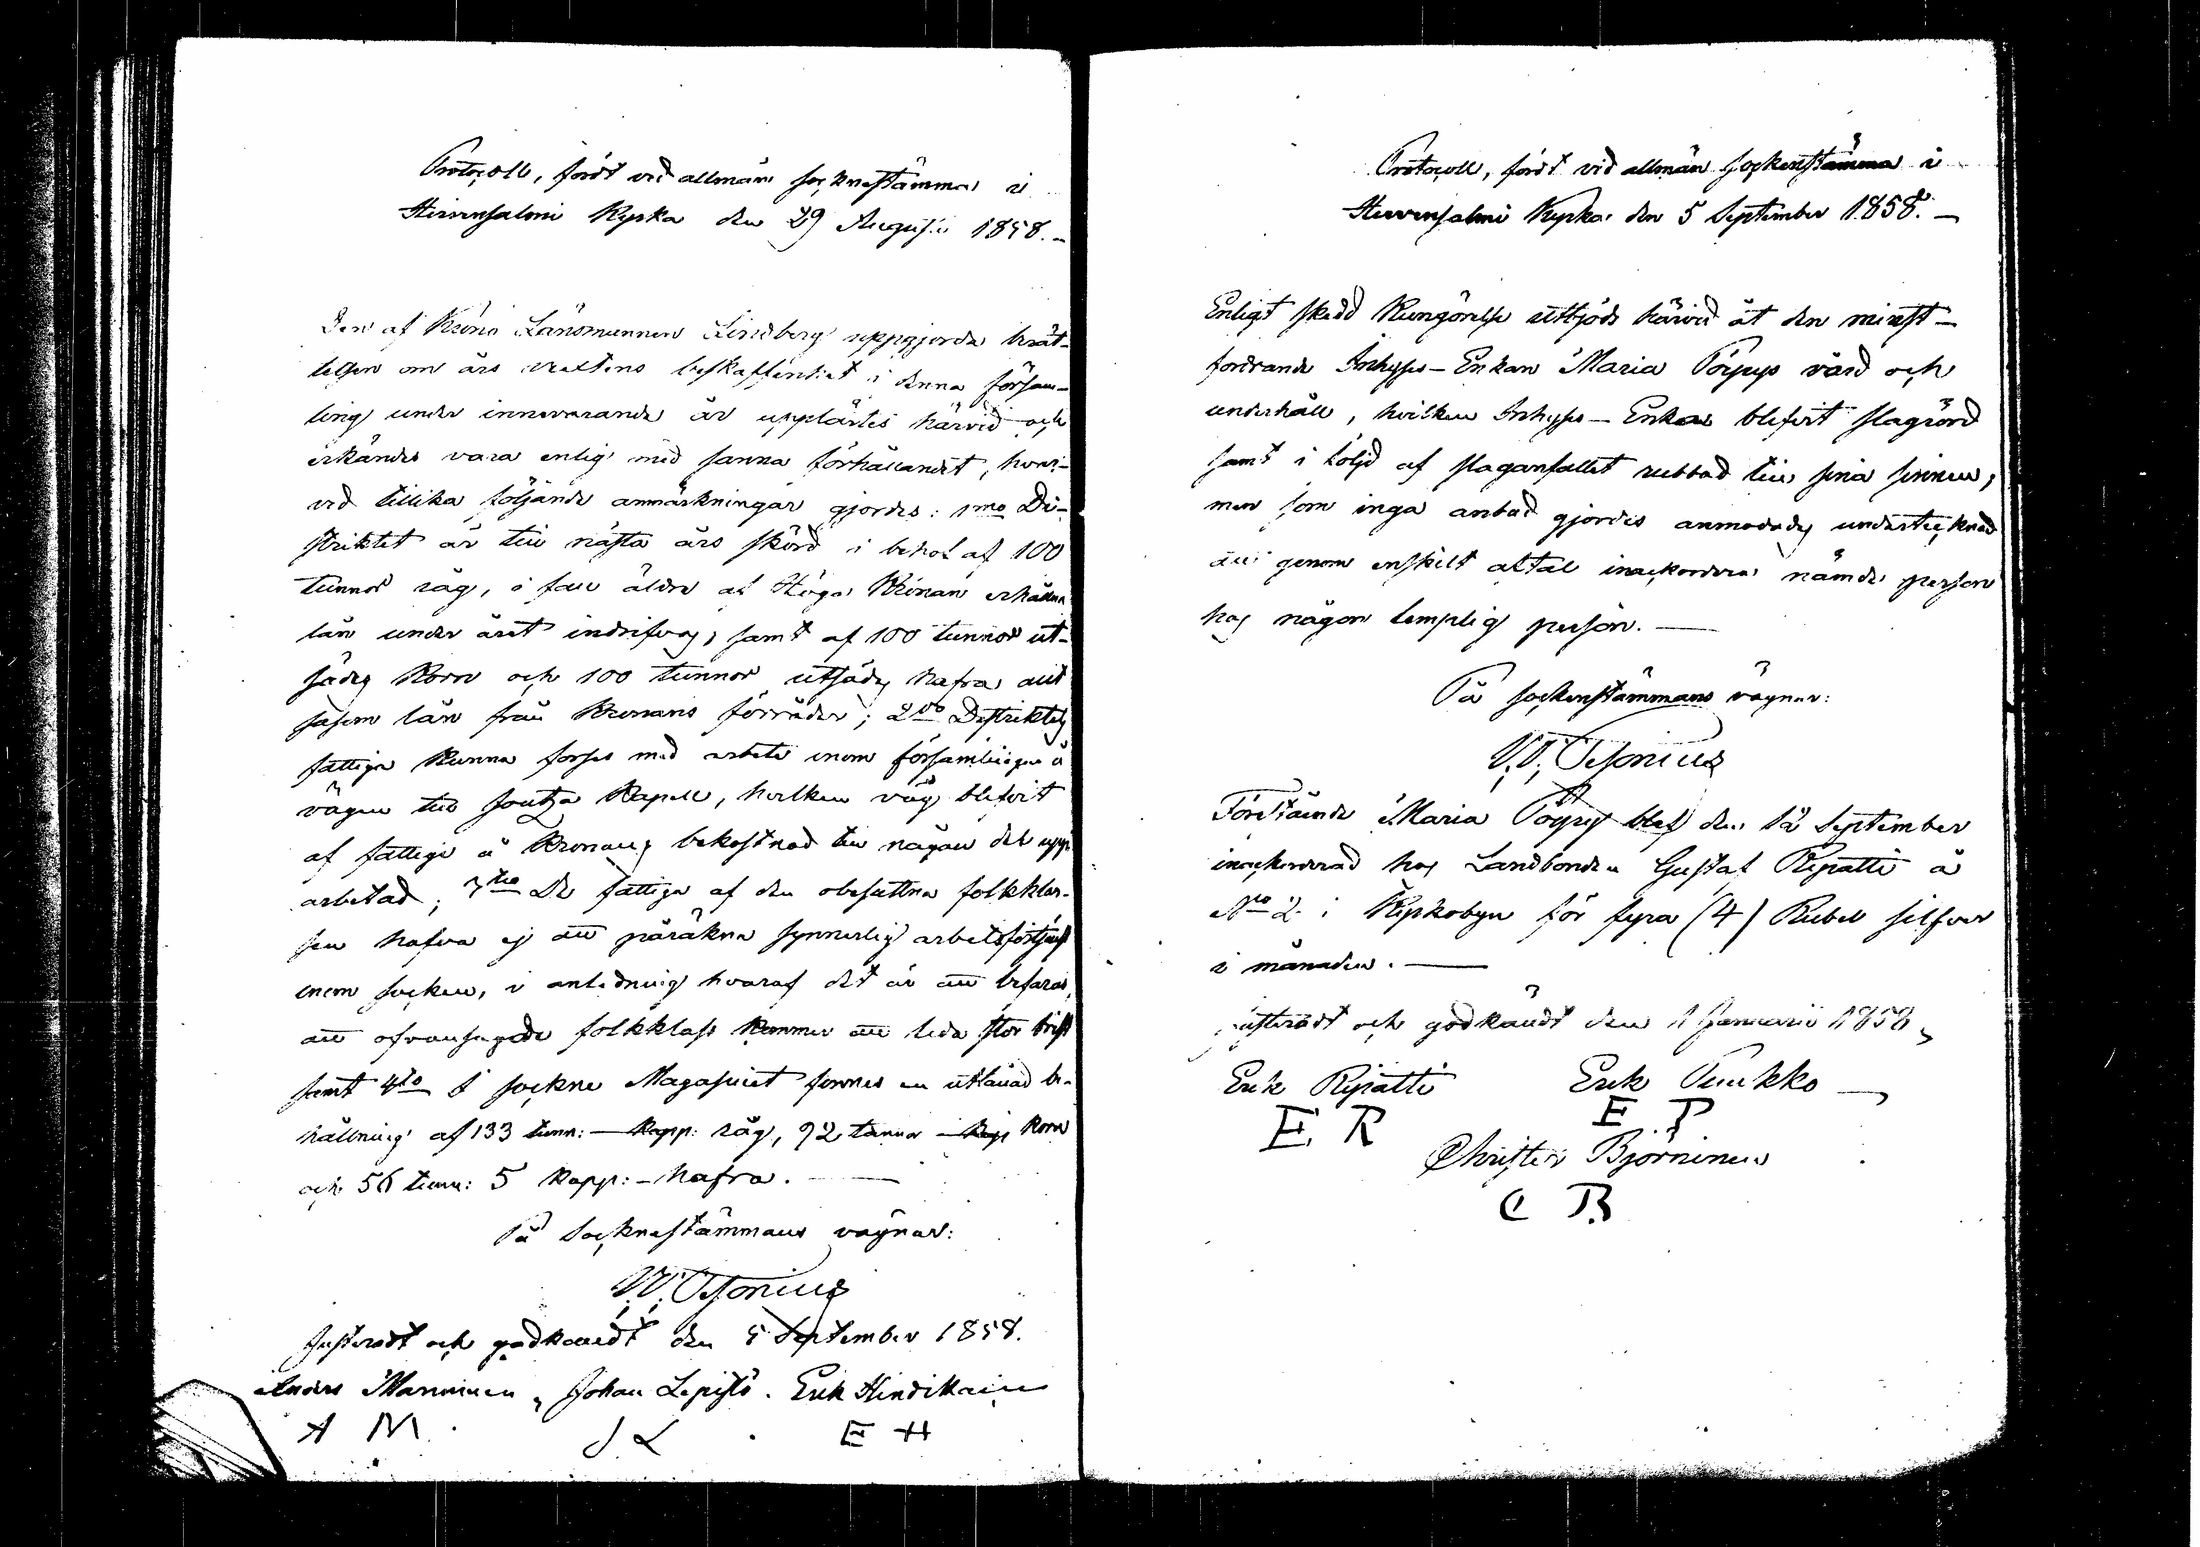 Protocoll, fördt vid allmän socknestämma i
Hirvensalmi Kyrka den 29 Augusti 1858.-
Den af Krono Länsmannen Lindberg uppgjorda berät-
telsen om års vextens beskaffenhet i denna försam-
ling under innevarande år upplästes härvid och
erkändes vara enlig med sanna förhållandet, hvar-
vid tillika följande anmärkningar gjordes: 1mo Di-
striktet är till nästa års skörd i behof af 100
tunnor råg, i fall äldre af Höga Kronan erhållna
lån under året indrifvas, samt af 100 tunnor ut-
sädes Korn och 100 tunnor utsädes hafra allt
såsom lån från Kronans förråder; 2do Distriktets
fattiga kunna förses med arbete inom församlingen å
vägen till Joutsa Kapell, hvilken väg blifvit
af fattige å Kronans bekostnad till någon del upp-
arbetad; 3tio De fattiga af den obesuttna folkklas-
sen hafva ej att påräkna synnerlig arbetsförtjenst
inom socken, i anledning hvaraf det är att befaras,
att ofvansagde folkklass kommer att lida stor brist
samt 4to I sockne Magasinet finnes en utlånad be-
hållning af 133 tunn: - Kapp: råg, 92 tunnor - Kapp Korn
och 56 tunn: 5 Kapp: - hafra.
På Socknestämmans vägnar:
Justeradt och godkändt den 5 September 1858.
Anders Manninen, Johan Lepistö. Erik Hindikain
A M. J L. E H
Protocoll, fördt vid allmän sockenstämma i
Hirvensalmi Kyrka den 5 September 1858.-
Enligt skedd Kungörelse utbjöds härvid åt den minst-
fordrande Inhyses-Enkan Maria Pöyrys vård och
underhåll, hvilken Inhyses-Enka blifvit slagrörd
samt i följd af slaganfallet rubbad till sina sinnen,
men som inga anbud gjordes anmodades undertecknad
att genom enskilt aftal inackordera nämde person
hos någon lämplig person.-
På sockenstämmans vägnar:
Förestående Maria Pöyry blef den 12 September
inackorderad hos Landbonden Gustaf Ripatti å
No 2. i Kyrkobyn för fyra (4) Rubel silfver
i månaden.-
Justeradt och godkändt den 1 Januarii 1858
Erik Ripatti Erik Puukko
E. R E. P
Christer Björninen
C B